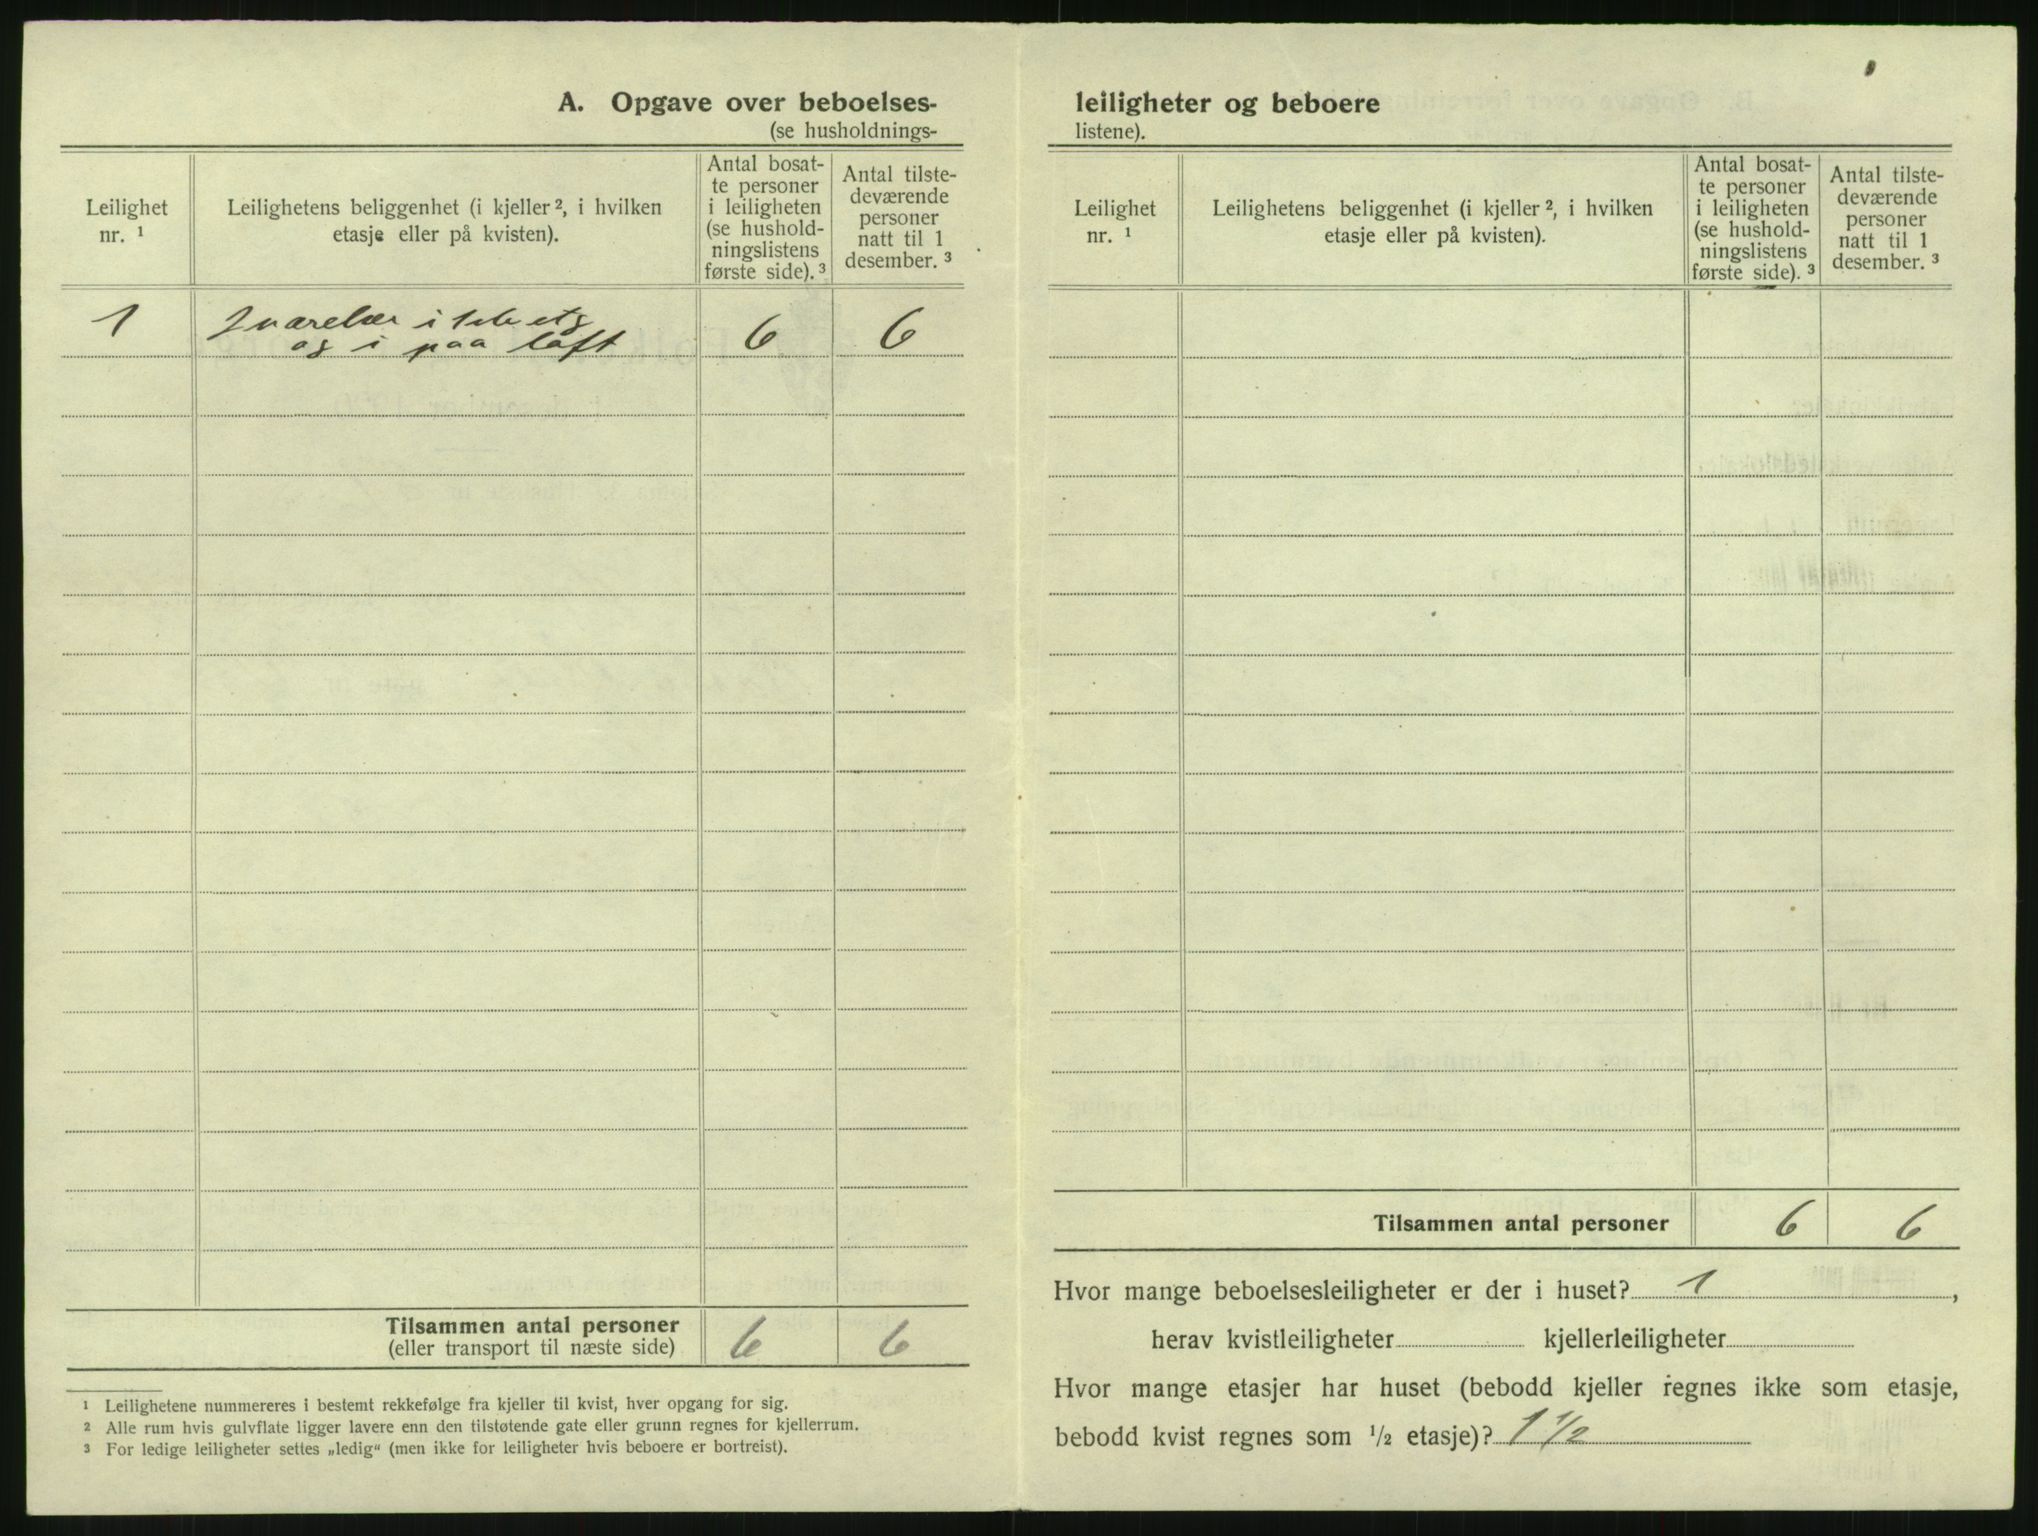 A. Opgave over beboelses-
(se husholdnings-
Leilighet nr. ¹
Leilighetens beliggenhet (i kjeller ², i hvilken etasje eller på kvisten).
Antal bosat-
te personer
i leiligheten
(se hushold-
ningslistens
første side). ³
Antal tilste-
deværende
personer
natt til 1
desember. ³
1
værelser i 1ste etg
og i paa loft
6
6
Tilsammen antal personer
(eller transport til næste side)
6
6
¹ Leilighetene nummereres i bestemt rekkefølge fra kjeller til kvist, hver opgang for sig.
² Alle rum hvis gulvflate ligger lavere enn den tilstøtende gate eller grunn regnes for kjellerrum.
³ For ledige leiligheter settes „ledig“ (men ikke for leiligheter hvis beboere er bortreist).
leiligheter og beboere
listene).
Leilighet nr. ¹
Leilighetens beliggenhet (i kjeller ², i hvilken etasje eller på kvisten).
Antal bosat-
te personer
i leiligheten
(se hushold-
ningslistens
første side). ³
Antal tilste-
deværende
personer
natt til 1
desember. ³
Tilsammen antal personer 6 6
Hvor mange beboelsesleiligheter er der i huset? 1 ,
herav kvistleiligheter kjellerleiligheter
Hvor mange etasjer har huset (bebodd kjeller regnes ikke som etasje,
bebodd kvist regnes som ½ etasje)? 1 ½